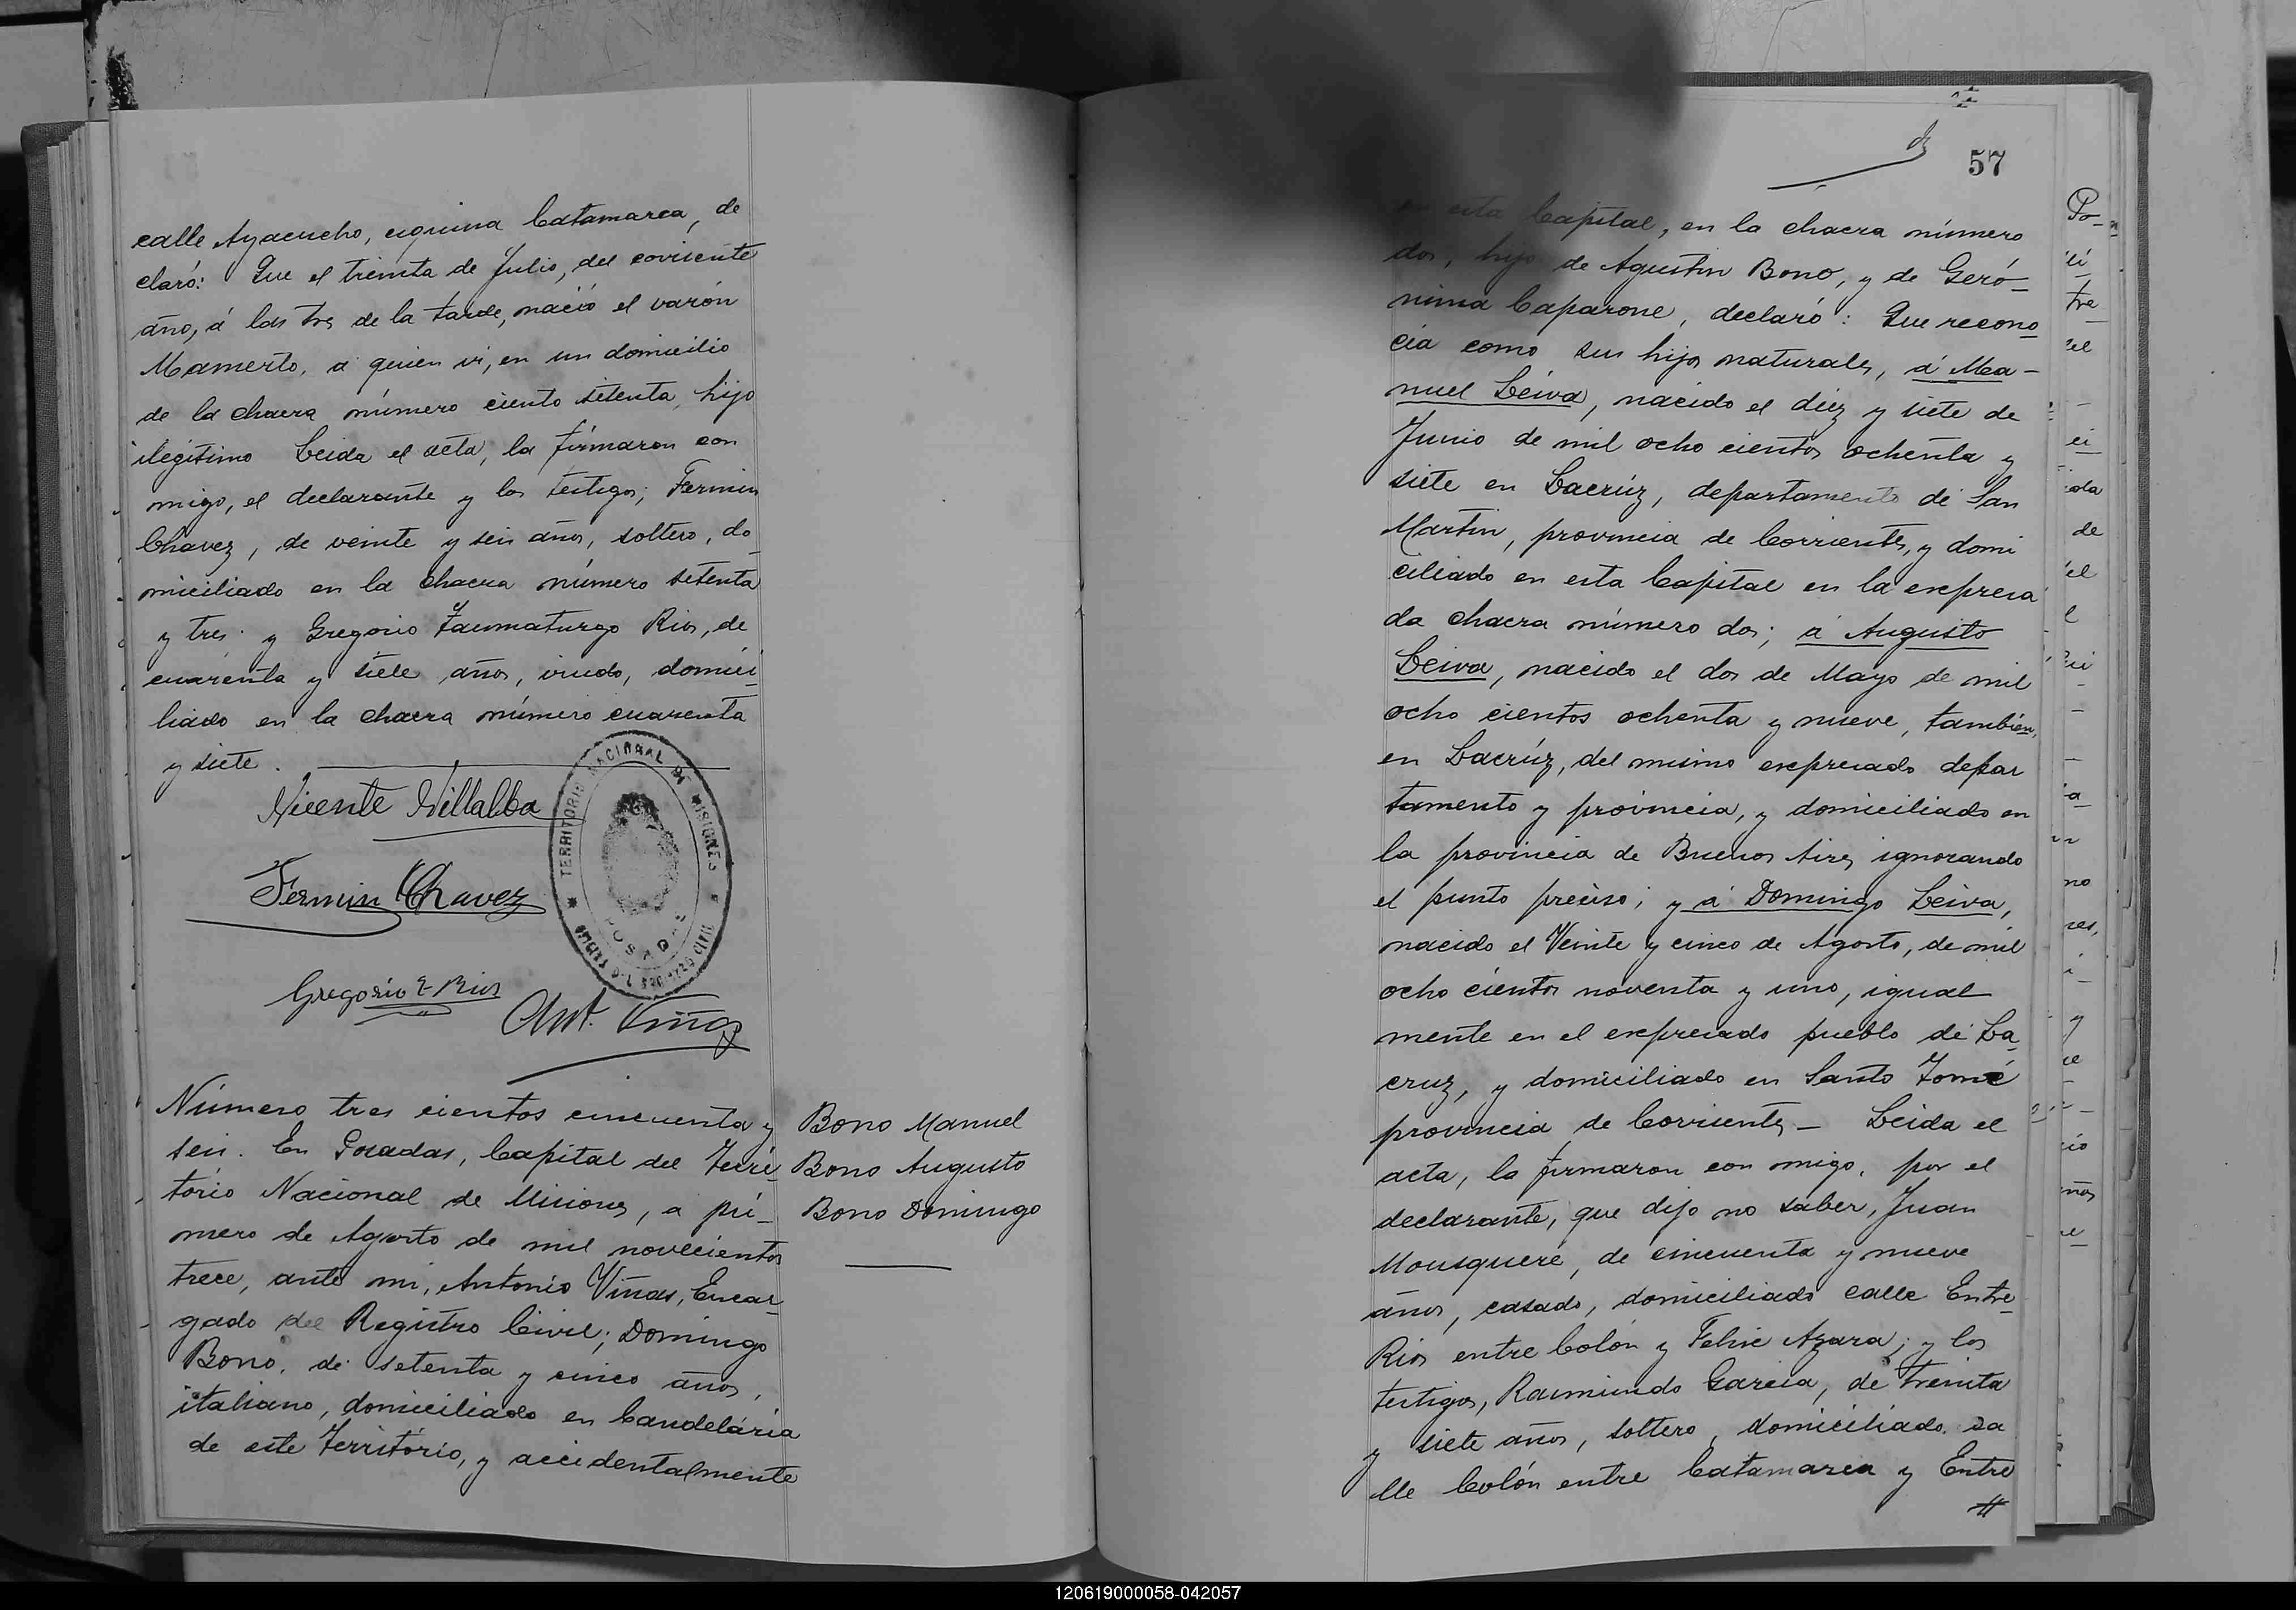 calle Ayacucho, esquina Catamarca, de
claró: Que el treinta de Julio, del corriente
año, á las tres de la tarde, nació el varón
Mamerto, a quien vi, en un domicilio
de la chacra número ciento setenta, hijo
ilegítimo Leida el acta, la firmaron con
migo, el declarante y los testigos; Fermin
Chavez, de veinte y seis años, soltero, do
miciliado en la chacra número setenta
y tres y Gregorio Taumaturgo Rios, de
cuarenta y siete años, viudo, domici
liado en la chacra número cuarenta
y siete.
Vicente Villalba
Fermin Chavez
Gregorio T Rios
Ant. Viñas
TERRITORIO NACIONAL DE MISIONES
POSADAS
OFICINA DEL REGISTRO CIVIL
Número tres cientos cincuenta y
seis. En Posadas, Capital del Terri
torio Nacional de Misiones, a pri-
mero de Agosto de mil novecientos
trece, ante mi, Antonio Viñas, Encar
gado del Registro Civil; Domingo
Bono, de setenta y cinco años,
italiano, domiciliado en Candelária
de este Território, y accidentalmente
Bono Manuel
Bono Augusto
Bono Domingo
57
en esta Capital, en la chacra número
dos, hijo de Agustin Bono, y de Geró-
nima Caparone, declaró: Que recono
cia como sus hijos naturales, á Ma-
nuel Leiva, nacido el diez y siete de
Junio de mil ocho cientos ochenta y
siete en Lacrúz, departamento de San
Martin, provincia de Corrientes, y domi
ciliado en esta Capital en la expresa
da chacra número dos; a Augusto
Leiva, nacido el dos de Mayo de mil
ocho cientos ochenta y nueve, tambien,
en Lacrúz, del mismo expresado depar
tamento y provincia, y domiciliado en
la provincia de Buenos Aires ignorando
el punto preciso; y á Domingo Leiva,
nacido el Veinte y cinco de Agosto, de mil
ocho cientos noventa y uno, igual
mente en el expresado pueblo de La
cruz, y domiciliado en Santo Tomé
provincia de Corrientes - Leida el
acta, la firmaron con migo, por el
declarante, que dijo no saber, Juan
Mousqueré, de cincuenta y nueve
años, casado, domiciliado calle Entre
Rios entre Colón y Felix Azara; y los
testigos, Raimundo Garcia, de treinta
y siete años, soltero, domiciliado ca
lle Colón entre Catamarca y Entre
#
120619000058-042057